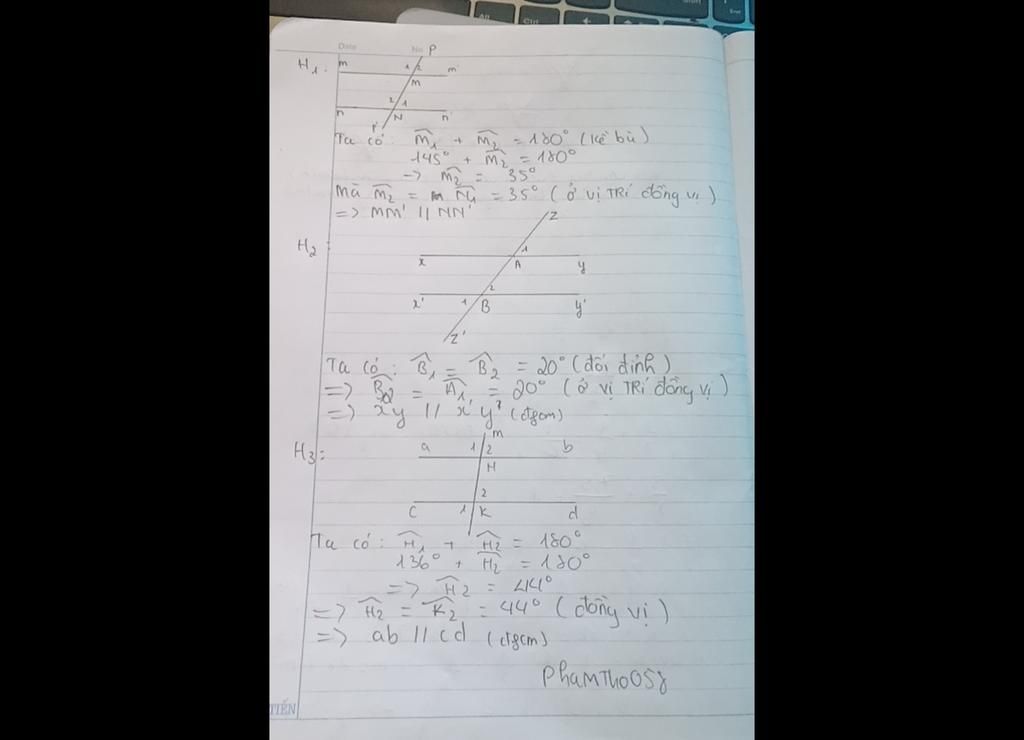 Alt
Ctrl
Date
No
P
H1:
m
1 2
m'
M
2 1
n
N
n'
P'
Ta có: M1 + M2 = 180° (kề bù)
145° + M2 = 180°
-> M2 = 35°
Mà M2 = N1 = 35° (ở vị TRí đồng vị)
=> MM' // NN'
Z
H2:
1
x
A
y
2
x'
1
B
y'
Z'
Ta có: B1 = B2 = 20° (đối đỉnh)
=> B2 = A1 = 20° (ở vị TRí đồng vị)
=> xy // x'y' (đfcm)
m
H3:
a
1 2
b
H
2
c
1
K
d
Ta có: H1 + H2 = 180°
136° + H2 = 180°
=> H2 = 44°
=> H2 = K2 = 44° (đồng vị)
=> ab // cd (đfcm)
PhamTho058
TIẾN